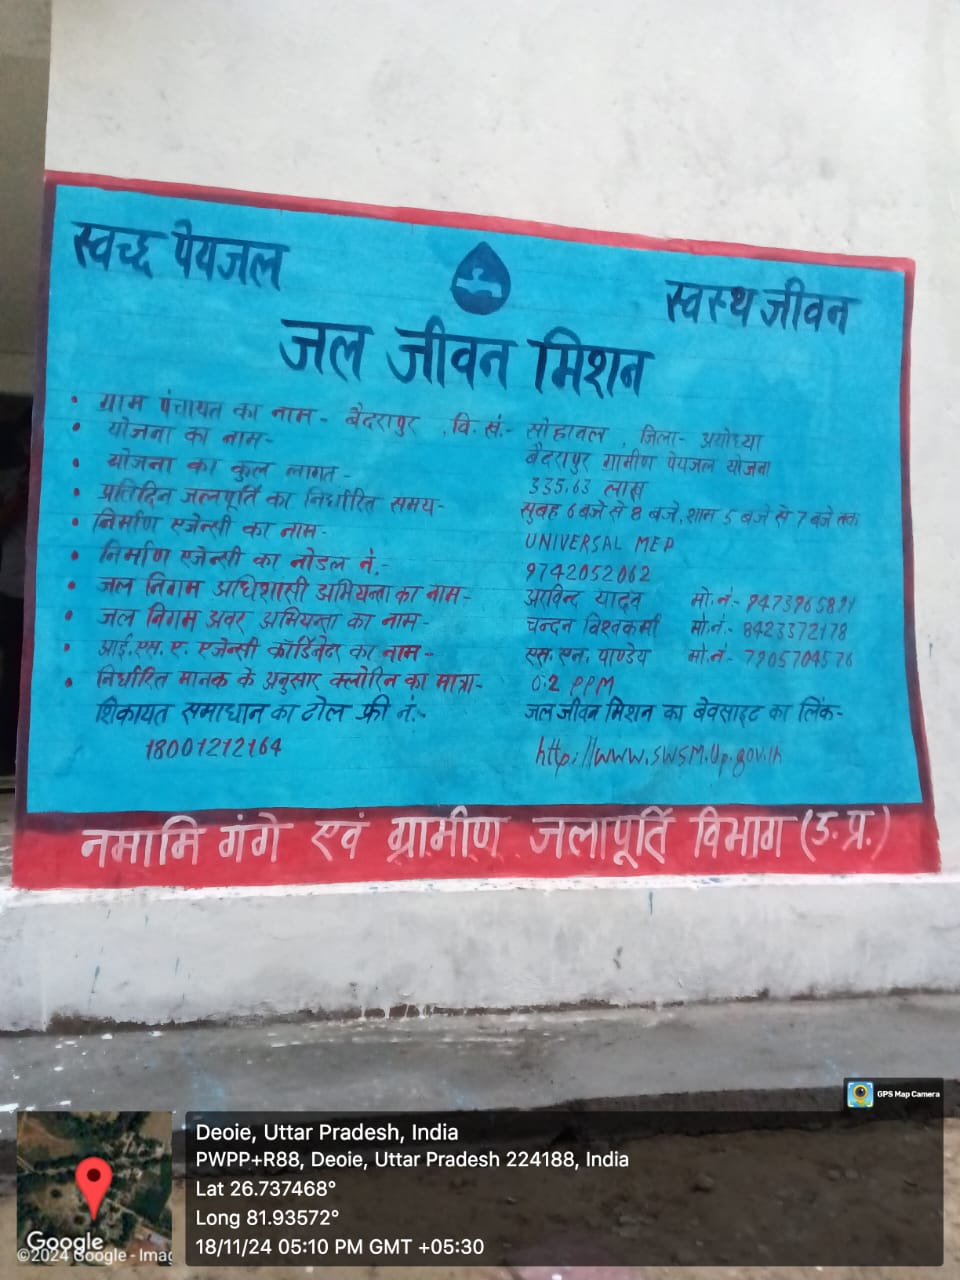 स्वच्छ पेयजल
स्वस्थ जीवन
जल जीवन मिशन
• ग्राम पंचायत का नाम- बैदरापुर , वि. खं.- सोहावल , जिला- अयोध्या
• योजना का नाम- बैदरापुर ग्रामीण पेयजल योजना
• योजना का कुल लागत- 335.63 लाख
• प्रतिदिन जलपूर्ति का निर्धारित समय- सुबह 6 बजे से 8 बजे, शाम 5 बजे से 7 बजे तक
• निर्माण एजेन्सी का नाम- UNIVERSAL MEP
• निर्माण एजेन्सी का नोडल नं.- 9742052062
• जल निगम अधिशासी अभियन्ता का नाम- अरविन्द यादव मो.नं.-
• जल निगम अवर अभियन्ता का नाम- चन्दन विश्वकर्मा मो.नं.- 8423372178
• आई.एस.ए. एजेन्सी कॉर्डिनेटर का नाम- एस. एन. पाण्डेय मो.नं- 7905704576
• निर्धारित मानक के अनुसार क्लोरिन का मात्रा- 0.2 PPM
शिकायत समाधान का टोल फ्री नं.- जल जीवन मिशन का बेवसाइट का लिंक-
18001212164 http://www.swsm.up.gov.in
नमामि गंगे एवं ग्रामीण जलापूर्ति विभाग (उ.प्र.)
GPS Map Camera
Deoie, Uttar Pradesh, India
PWPP+R88, Deoie, Uttar Pradesh 224188, India
Lat 26.737468°
Long 81.93572°
18/11/24 05:10 PM GMT +05:30
Google
©2024 Google - Imag